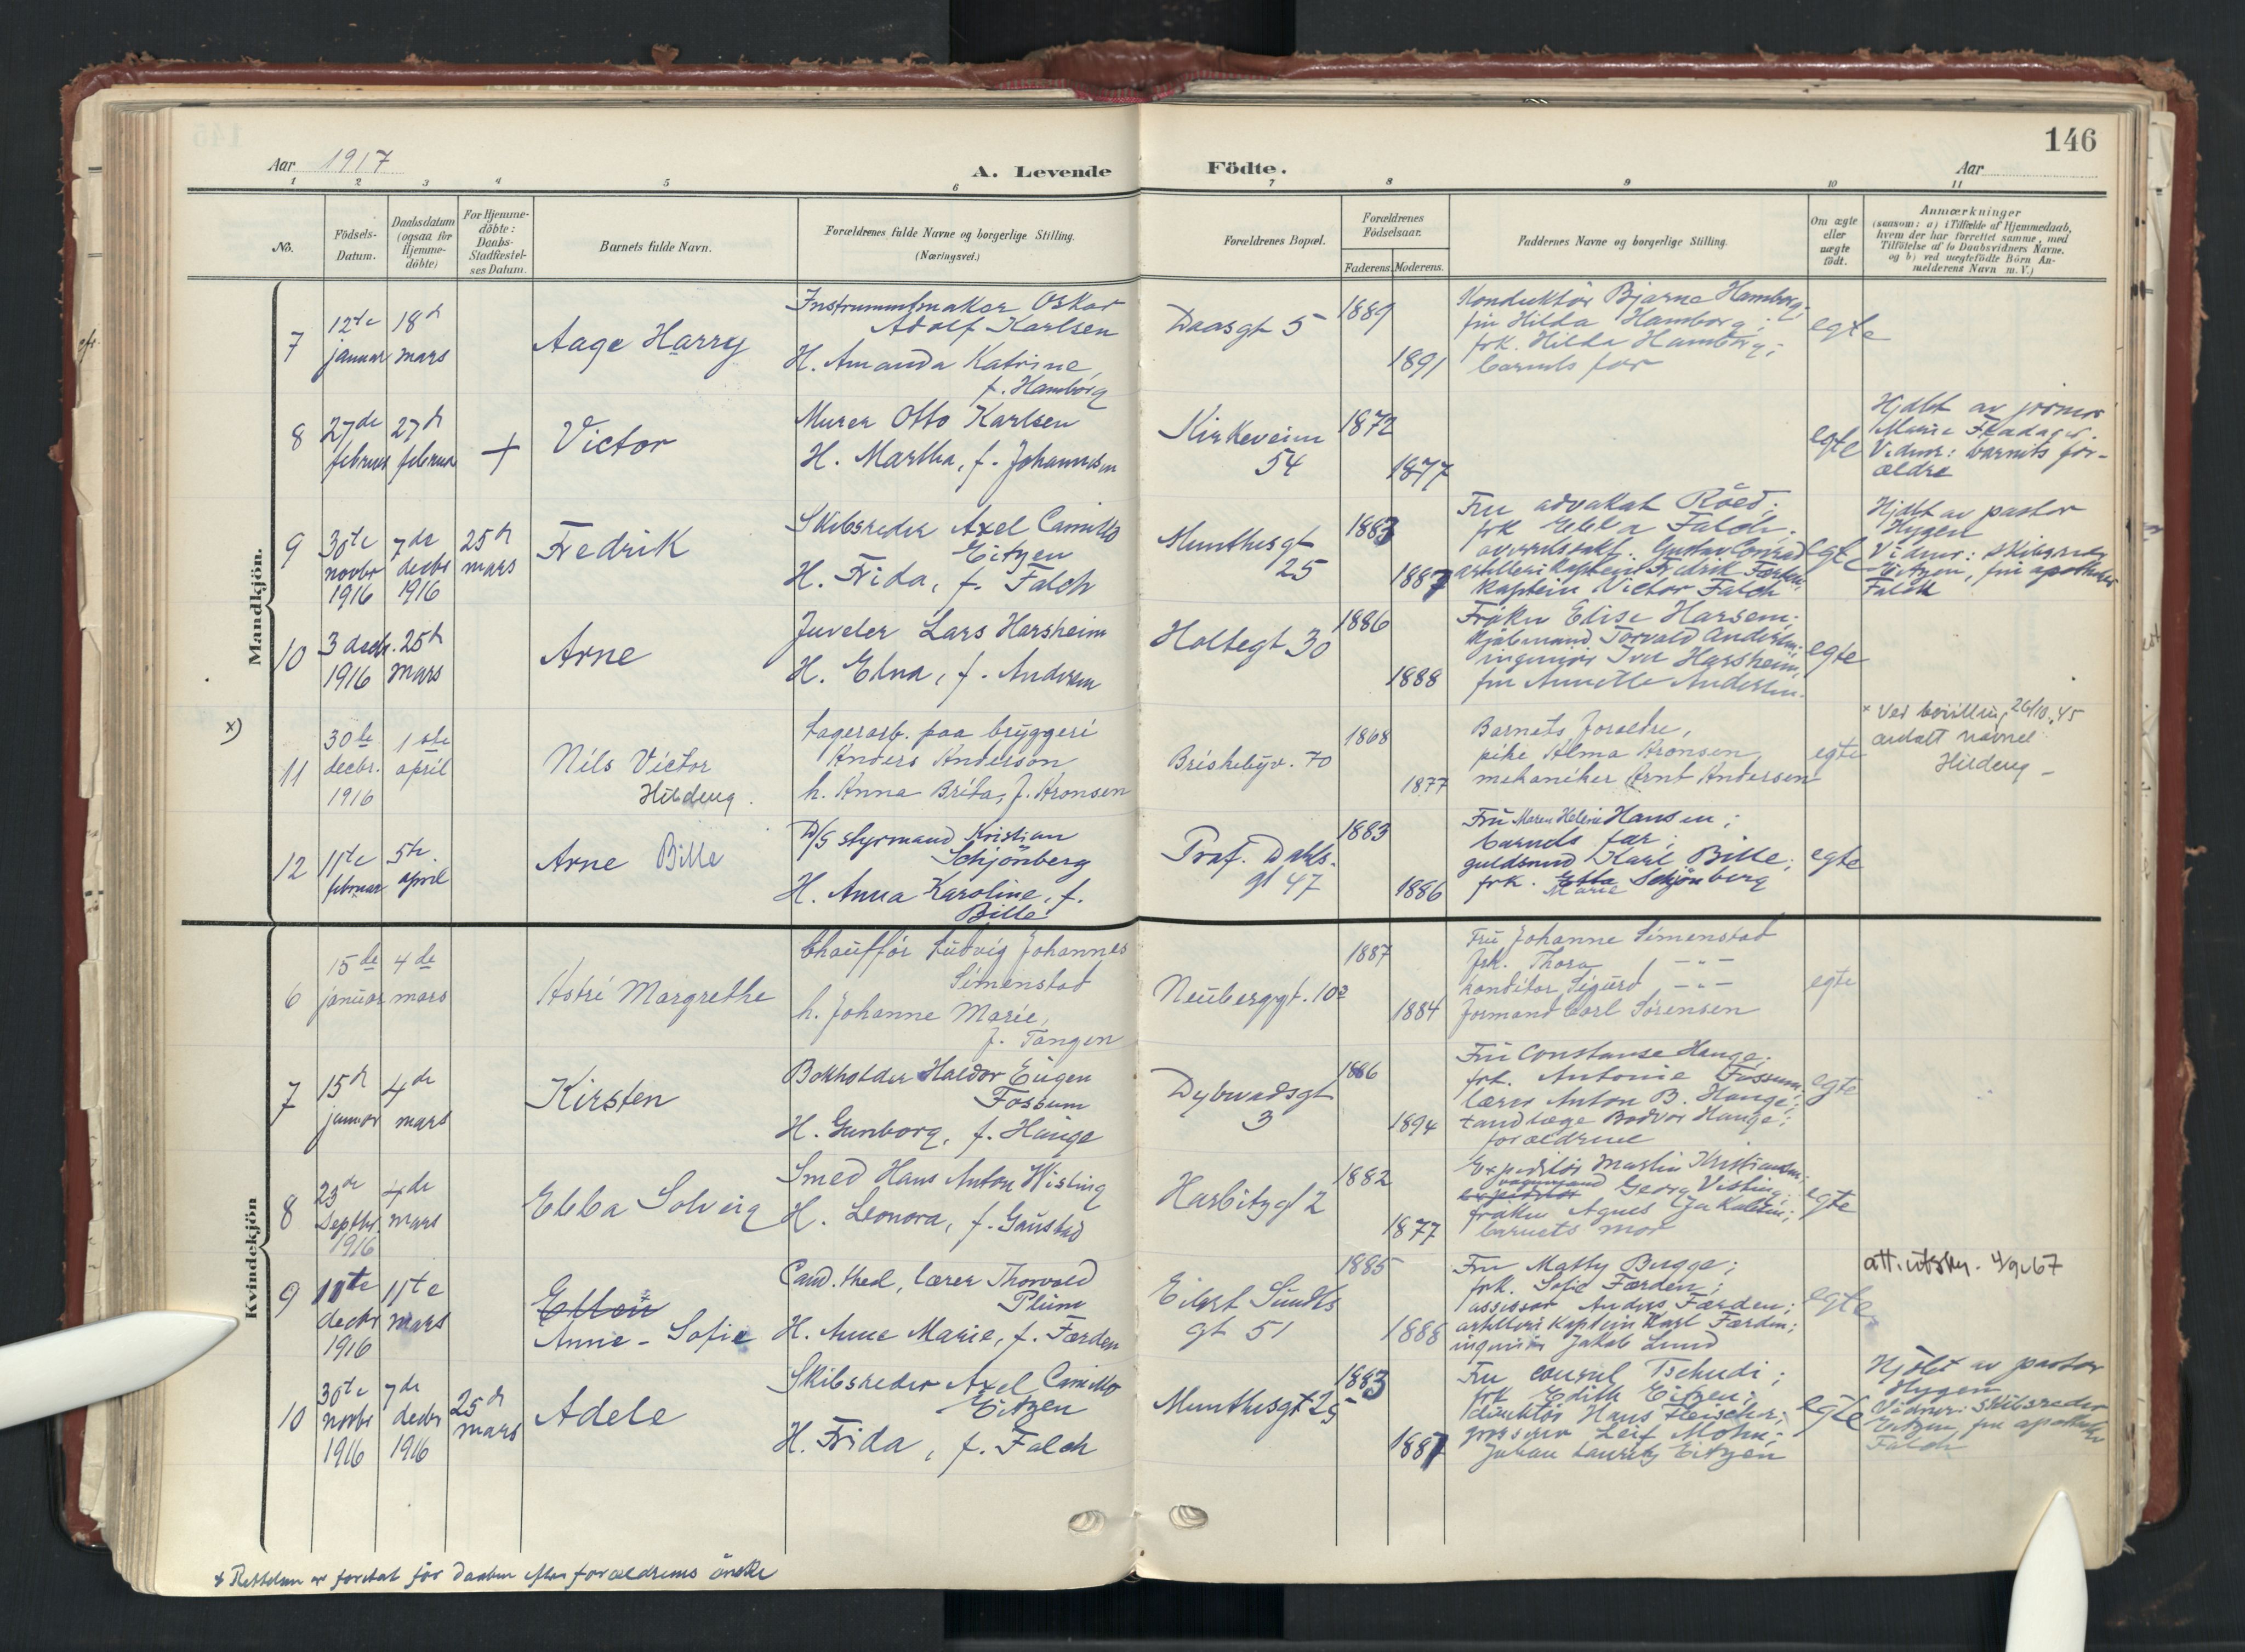 146
Aar 1917
A. Levende Födte.
Aar
1 2 3 4 5 6 7 8 9 10 11
No.
Födsels-Datum.
Daabsdatum (ogsaa for Hjemme-döbte)
For Hjemme-döbte: Daabs-Stadfæstel-ses Datum.
Barnets fulde Navn.
Forældrenes fulde Navne og borgerlige Stilling.
(Næringsvei.)
Forældrenes Bopæl.
Forældrenes Födselsaar.
Faderens. Moderens.
Faddernes Navne og borgerlige Stilling.
Om ægte eller uægte födt.
Anmærkninger
(saasom: a) i Tilfælde af Hjemmedaab,
hvem der har forrettet samme, med
Tilföielse af to Daabsvidners Navne,
og b) ved uægtefödte Börn An-
melderens Navn m. V.)
Mandkjön.
7
12te januar
18d mars
Aage Harry
Instrumentmaker Oskar
Adolf Karlsen
H. Amanda Katrine,
f. Hamborg
Daasgt 5
1889
1891
Konduktör Bjarne Hamborg;
fru Hilda Hamborg;
frk. Hilda Hamborg;
barnets far
egte
8
27de februar
27d februar
+
Victor
Murer Otto Karlsen
H. Martha, f. Johannesen
Kirkeveien
54
1872
1877
egte
Hjdbt av jormor
Vidner: barnets for-
ældre
9
30te novbr 1916
7de decbr 1916
25d mars
Fredrik
Skibsreder Axel Camillo
Eitzen
H. Frida, f. Falch
Munthesgt
25
1883
1887
Fru advokat Röed;
frk Ebba Falch;
overretssakf. Gustav Conrad
artillerikaptein Fredrik Færden;
Kaptein Victor Falch
egte
Hjdbt av pastor
Hygen
Vidner: skibsreder
Eitzen, fru apotheker
Falch
10
3 decbr. 1916
25d mars
Arne
Juveler Lars Harsheim
H. Edna, f. Andersen
Holtegt 30
1886
1888
Fröken Elise Harsem;
Torvald Andersen;
ingeniör Iver Harsheim,
fru Annette Andersen.
egte
x)
11
30te decbr. 1916
1ste april
Nils Victor
Hildeng.
Lagerarb. paa bryggeri
Anders Anderson
h. Anna Brita, f. Aronsen
Briskebyv. 70
1868
1877
Barnets foraeldre,
pike Alma Aronsen
mekaniker Arnt Andersen
egte
x Ved bevilling 26/10.45
antatt navnet
Hildeng -
12
11te februar
5te april
Arne Bille
D/S styrmand Kristian
Schjönberg
H. Anna Karoline, f.
Bille
Prof. Dahls.
gt 47
1883
1886
Fru Maren Helene Hansen;
barnets far;
guldsmed Karl Bille;
frk. Etta Schjönberg
Marie
egte
Kvindekjön
6
15de januar
4de mars
Astri Margrethe
Chaufför Ludvig Johannes
Simenstad
h. Johanne Marie,
f. Tangen
Neuberggt. 10
1887
1884
Fru Johanne Simenstad
frk. Thora -"-
konditor Sigurd -"-
formand Carl Sörensen
egte
7
15d januar
4de mars
Kirsten
Bokholder Haldor Eugen
Fossum
H. Gunborg, f. Hauge
Dybwadsgt
3
1886
1894
Fru Constanse Hauge.
frk. Antonie Fossum;
lærer Anton B. Hauge;
tandlæge Bodvar Hauge;
forældrene
egte
8
23de Septbr. 1916
4de mars
Ebba Solveig
Smed Hans Anton Wisting
H. Leonora, f. Gaustad
Harbitzgt 2
1882
1877
Expeditör Martin Kristiansen;
Georg Visting;
fröken Agnes
barnets mor
egte
9
10te decbr 1916
11te mars
Anne-Sofie
Cand. theol, lærer Thorvald
Plum
H. Anne Marie, f. Færden
Eilert Sundts
gt 51
1885
1888
Fru Matty Bugge;
frk. Sofie Færden;
assessor Anders Færden;
artilleri Kaptein Karl Færden;
ingeniör Jakob Lund
egte
att. utskr. 4/9-67
10
30te novbr 1916
7de decbr 1916
25d mars
Adele
Skibsreder Axel Camillo
Eitzen
H. Frida, f. Falch
Munthesgt 25
1883
1887
Fru consul Tschudi;
frk Edith Eitzen;
direktör Hans Fleischer;
grosserer Leif Mohn;
Johan Lauritz Eitzen
egte
Hjdbt av pastor
Hygen
Vidner: skibsreder
Eitzen, fru apotheker
Falch
x Rettelsen er foretat för daaben efter forældrenes önske